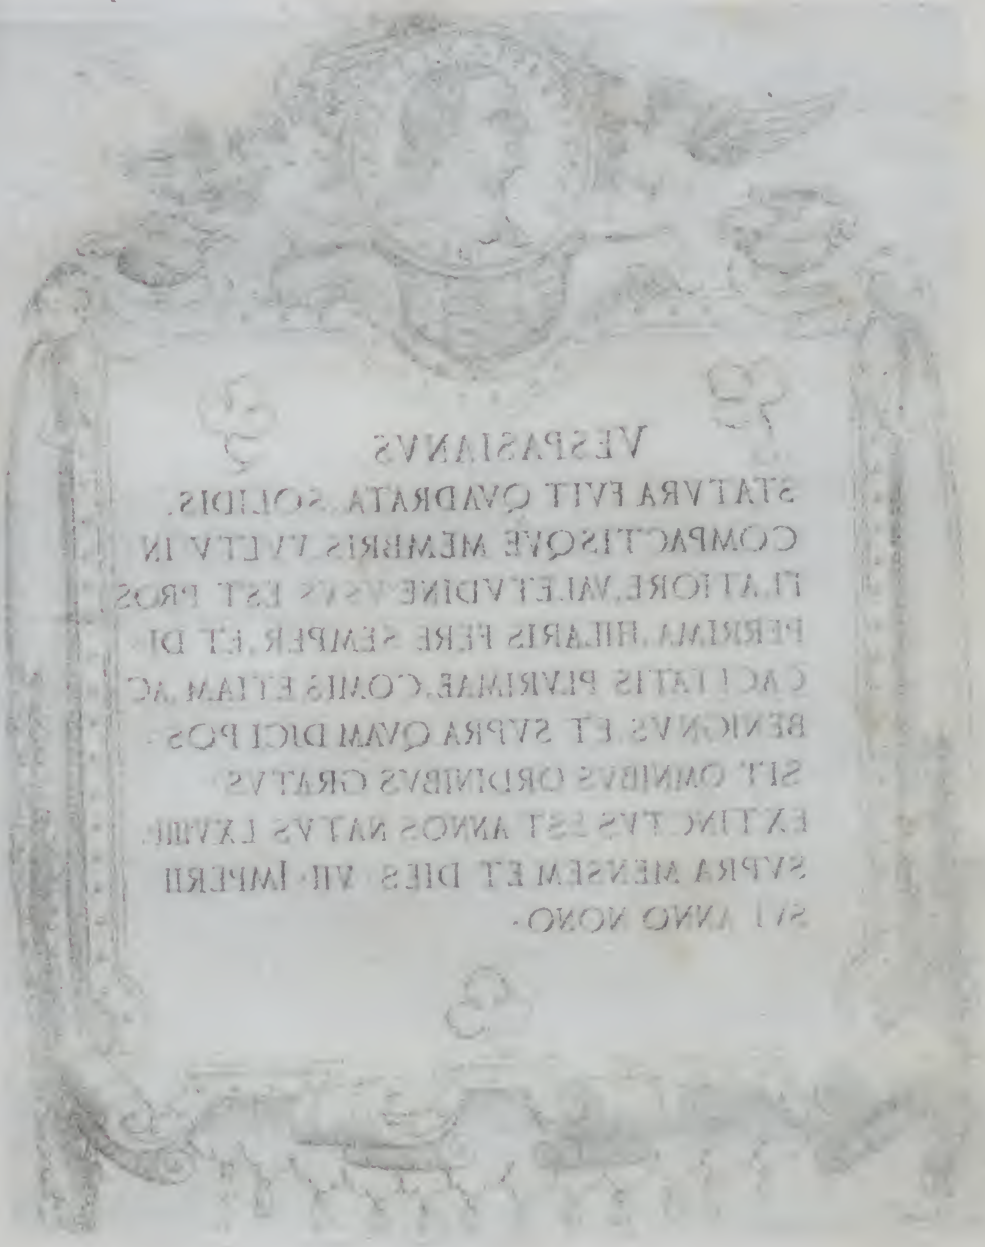 VESPASIANVS
STATVRA FVIT QVADRATA, SOLIDIS,
COMPACTISQVE MEMBRIS. VVLTV IN
FLATIORE, VALETVDINE VSVS EST PROS
PERRIMA, HILARIS FERE SEMPER, ET DI
CACITATIS PLVRIMAE, COMIS ETIAM, AC
BENIGNVS, ET SVPRA QVAM DICI POS-
SIT OMNIBVS ORDINIBVS GRATVS
EXTINCTVS EST ANNOS NATVS LXVIIII.
SVPRA MENSEM ET DIES · VII · IMPERII
SVI ANNO NONO·